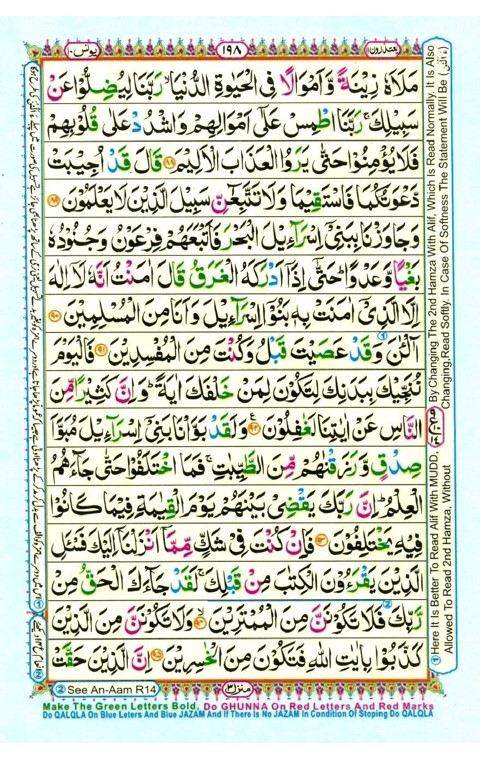 يونس ١٠
١٩٨
يعتذرون ١١
مَلَاَهٗ زِيْنَةً وَّاَمْوَالًا فِى الْحَيٰوةِ الدُّنْيَا ۙ رَبَّنَا لِيُضِلُّوْا عَنْ
سَبِيْلِكَ ۚ رَبَّنَا اطْمِسْ عَلٰٓى اَمْوَالِهِمْ وَاشْدُدْ عَلٰى قُلُوْبِهِمْ
فَلَا يُؤْمِنُوْا حَتّٰى يَرَوُا الْعَذَابَ الْاَلِيْمَ ﴿۸۸﴾ قَالَ قَدْ اُجِيْبَتْ
دَّعْوَتُكُمَا فَاسْتَقِيْمَا وَلَا تَتَّبِعٰٓنِّ سَبِيْلَ الَّذِيْنَ لَا يَعْلَمُوْنَ ﴿۸۹﴾
وَجَاوَزْنَا بِبَنِىْٓ اِسْرَآءِيْلَ الْبَحْرَ فَاَتْبَعَهُمْ فِرْعَوْنُ وَجُنُوْدُهٗ
بَغْيًا وَّعَدْوًا ؕ حَتّٰٓى اِذَآ اَدْرَكَهُ الْغَرَقُ ۙ قَالَ اٰمَنْتُ اَنَّهٗ لَآ اِلٰهَ
اِلَّا الَّذِىْٓ اٰمَنَتْ بِهٖ بَنُوْٓا اِسْرَآءِيْلَ وَاَنَا مِنَ الْمُسْلِمِيْنَ ﴿۹۰﴾
آٰلْـٰٔنَ وَقَدْ عَصَيْتَ قَبْلُ وَكُنْتَ مِنَ الْمُفْسِدِيْنَ ﴿۹۱﴾ فَالْيَوْمَ
نُنَجِّيْكَ بِبَدَنِكَ لِتَكُوْنَ لِمَنْ خَلْفَكَ اٰيَةً ؕ وَاِنَّ كَثِيْرًا مِّنَ
النَّاسِ عَنْ اٰيٰتِنَا لَغٰفِلُوْنَ ﴿۹۲﴾ وَلَقَدْ بَوَّاْنَا بَنِىْٓ اِسْرَآءِيْلَ مُبَوَّاَ
صِدْقٍ وَّرَزَقْنٰهُمْ مِّنَ الطَّيِّبٰتِ ۚ فَمَا اخْتَلَفُوْا حَتّٰى جَآءَهُمُ
الْعِلْمُ ؕ اِنَّ رَبَّكَ يَقْضِىْ بَيْنَهُمْ يَوْمَ الْقِيٰمَةِ فِيْمَا كَانُوْا
فِيْهِ يَخْتَلِفُوْنَ ﴿۹۳﴾ فَاِنْ كُنْتَ فِىْ شَكٍّ مِّمَّآ اَنْزَلْنَآ اِلَيْكَ فَسْـَٔلِ
الَّذِيْنَ يَقْرَءُوْنَ الْكِتٰبَ مِنْ قَبْلِكَ ۚ لَقَدْ جَآءَكَ الْحَقُّ مِنْ
رَّبِّكَ فَلَا تَكُوْنَنَّ مِنَ الْمُمْتَرِيْنَ ﴿۹۴﴾ وَلَا تَكُوْنَنَّ مِنَ الَّذِيْنَ
كَذَّبُوْا بِاٰيٰتِ اللّٰهِ فَتَكُوْنَ مِنَ الْخٰسِرِيْنَ ﴿۹۵﴾ اِنَّ الَّذِيْنَ حَقَّتْ
① Here It Is Better To Read Alif With MUDD, By Changing The 2nd Hamza With Alif, Which Is Read Normally. It Is Also
Allowed To Read 2nd Hamza, Without Changing,Read Softly. In Case Of Softness The Statement Will Be
② See An-Aam R14
منزل ٣
Make The Green Letters Bold, Do GHUNNA On Red Letters And Red Marks
Do QALQLA On Blue Leters And Blue JAZAM And If There Is No JAZAM In Condition Of Stoping Do QALQLA